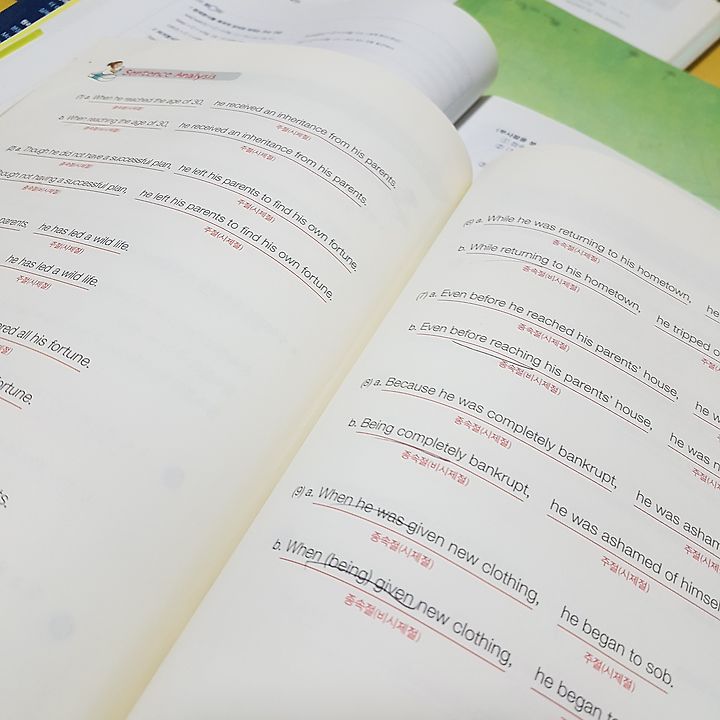 Sentence Analysis
(1) a. When he reached the age of 30, he received an inheritance from his parents.
종속절(시제절) 주절(시제절)
b. When reaching the age of 30, he received an inheritance from his parents.
종속절(비시제절) 주절(시제절)
(2) a. Though he did not have a successful plan, he left his parents to find his own fortune.
종속절(시제절) 주절(시제절)
though not having a successful plan, he left his parents to find his own fortune.
종속절(비시제절) 주절(시제절)
parents, he has led a wild life.
주절(시제절)
he has led a wild life.
주절(시제절)
all his fortune.
fortune.
(6) a. While he was returning to his hometown, he
종속절(시제절)
b. While returning to his hometown, he tripped
종속절(비시제절)
(7) a. Even before he reached his parents' house, he
종속절(시제절)
b. Even before reaching his parents' house, he was
종속절(비시제절)
(8) a. Because he was completely bankrupt, he was
종속절(시제절) 주절(시제절)
b. Being completely bankrupt, he was ashamed of
종속절(비시제절) 주절(시제절)
(9) a. When he was given new clothing, he began to sob.
종속절(시제절) 주절(시제절)
b. When (being) given new clothing, he began to
종속절(비시제절)